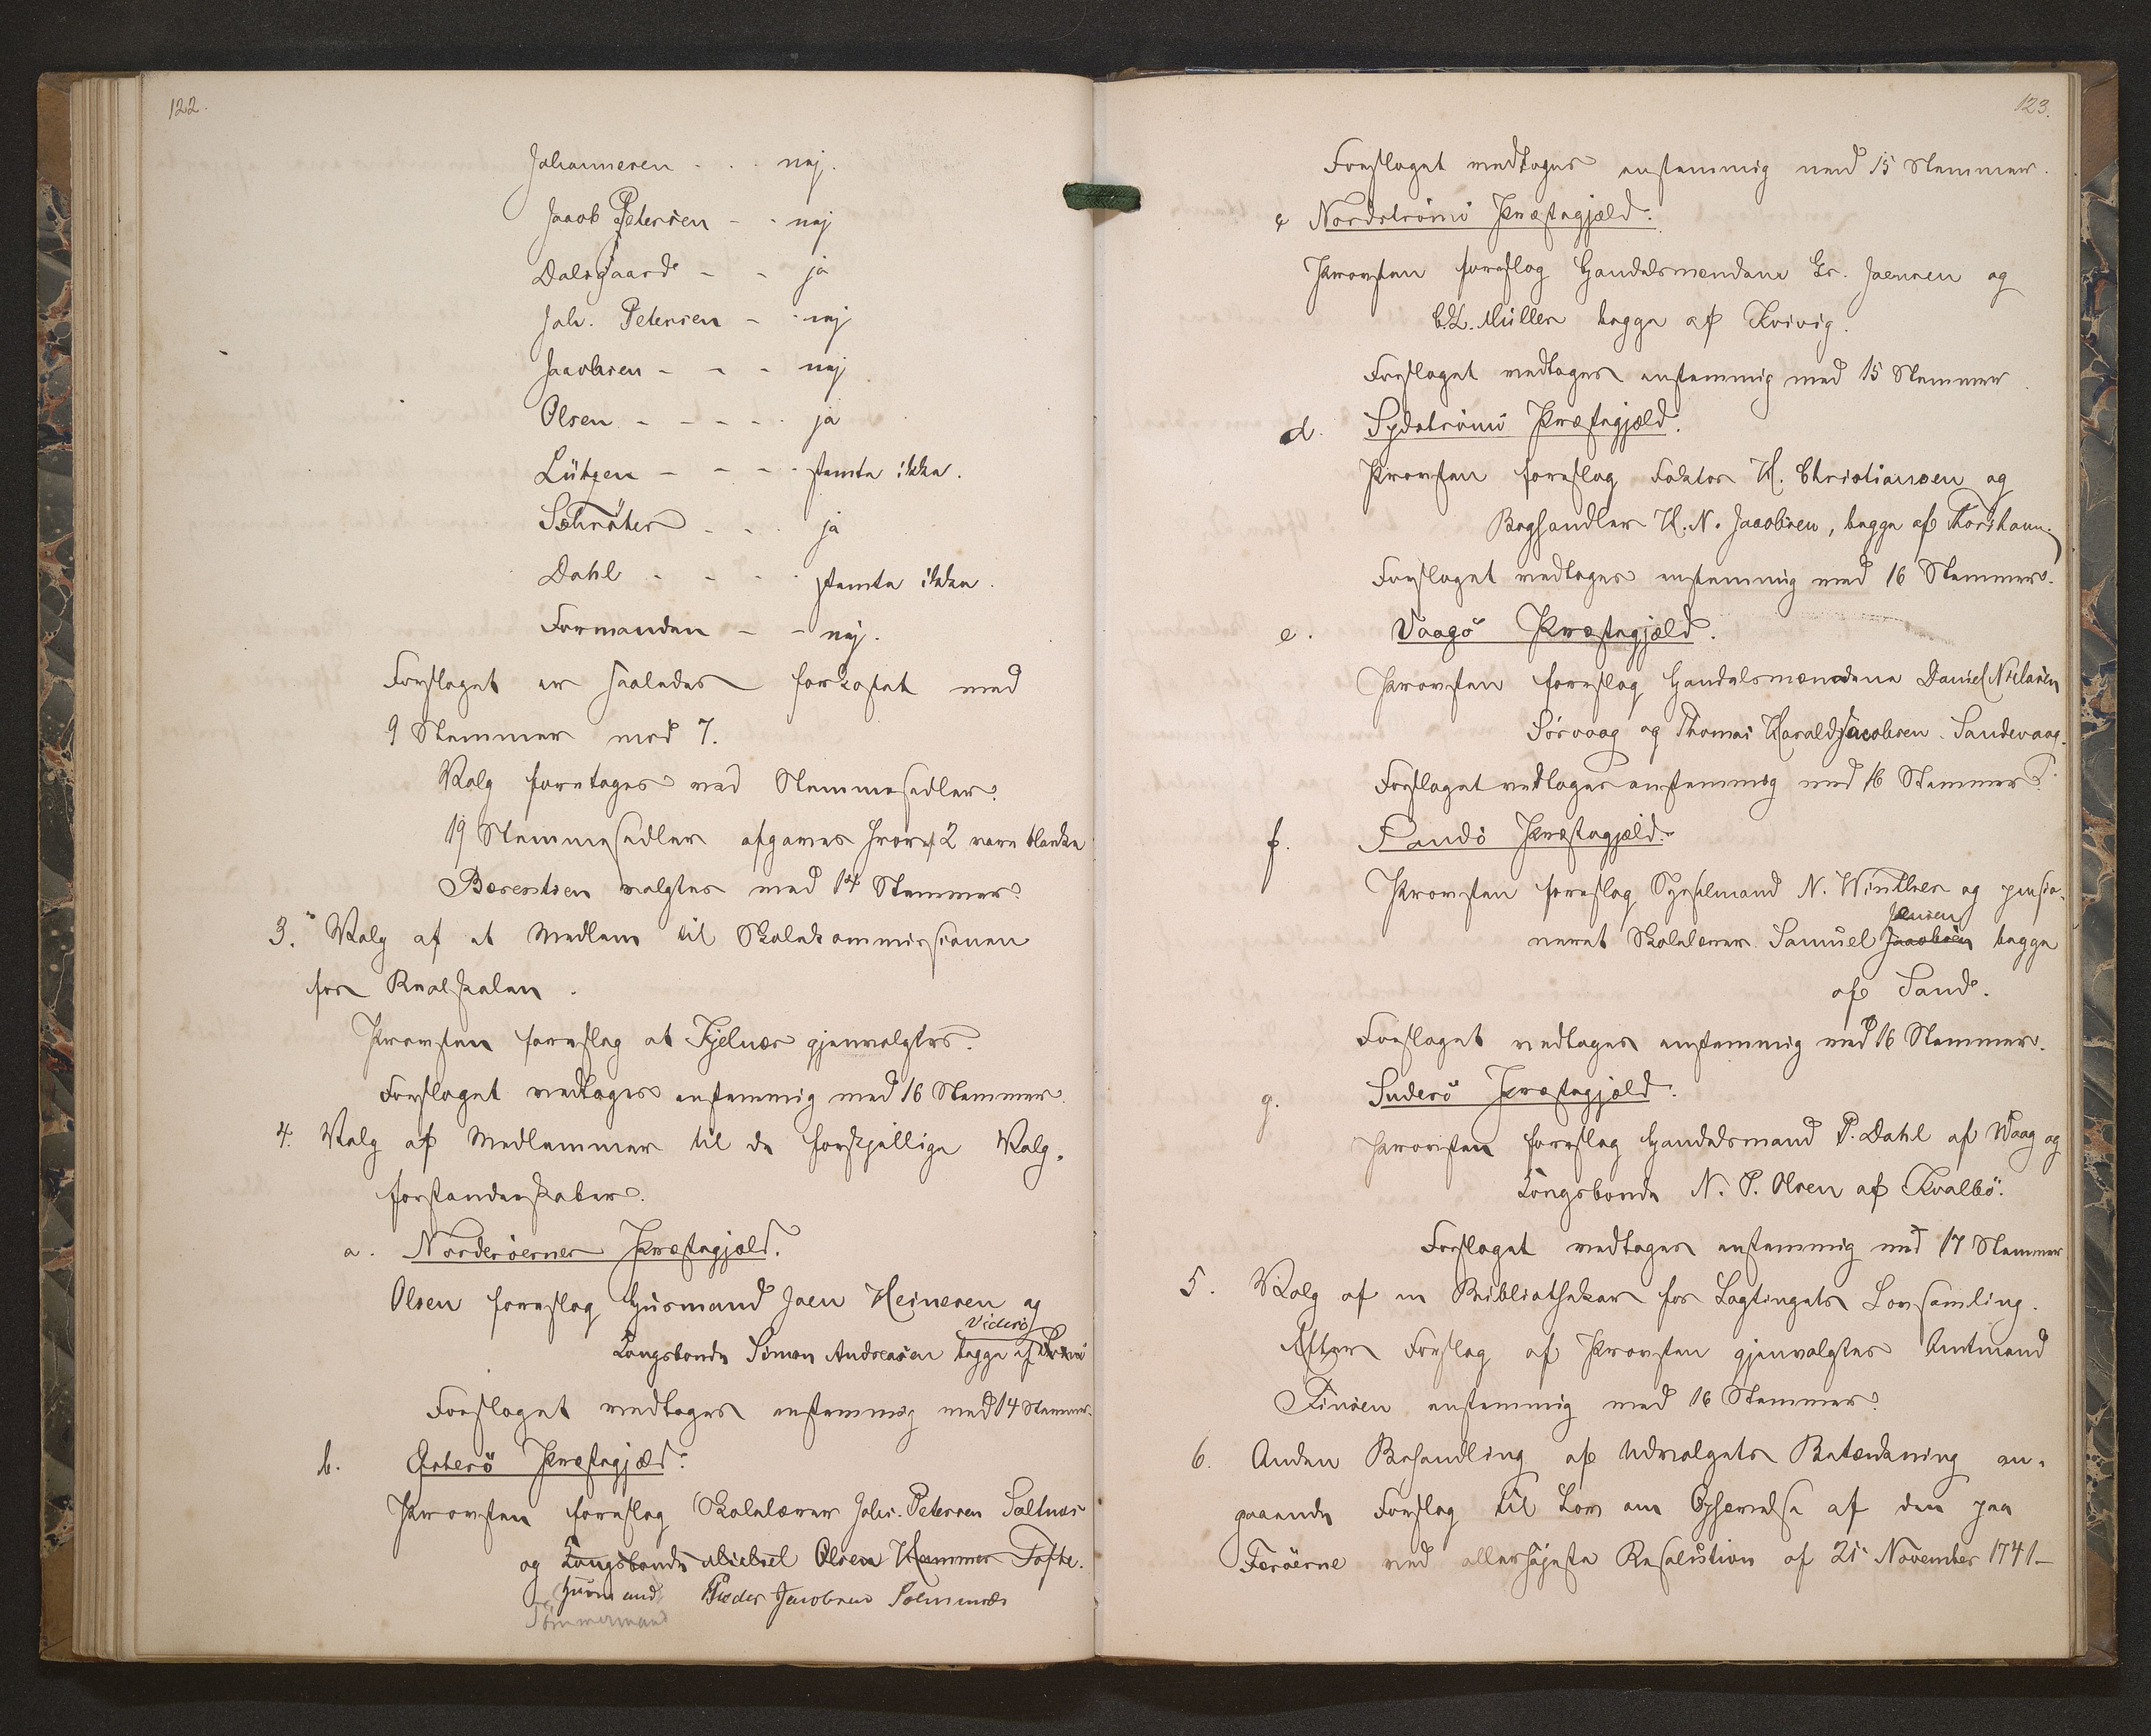 122.
Johannesen - - - nej.
Jacob Petersen - - nej
Dalsgaard - - ja
Joh. Petersen - - nej
Jacobsen - - - nej
Olsen - - - - ja
Lützen - - - - stemte ikke.
Schrøter - - - ja
Dahl - - - - stemte ikke.
Formanden - - nej.
Forslaget er saaledes forkastet med
9 Stemmer mod 7.
Valg foretages ved Stemmesedler.
19 Stemmesedler afgaves hvoraf 2 vare blanke
Bærentsen valgtes med 14 Stemmer.
3. Valg af et Medlem til Skolekommissionen
for Realskolen.
Provsten foreslog at Fjelnæs gjenvalgtes.
Forslaget vedtoges enstemmig med 16 Stemmer.
4. Valg af Medlemmer til de forskjellige Valg-
forstanderskaber.
a. Norderöernes Præstegjæld.
Olsen foreslog Husmand Joen Heinesen og
Viderö
Kongsbonde Simon Andreasen begge af
Forslaget vedtoges enstemmig med 14 Stemmer.
b. Österö Præstegjæld.
Provsten foreslog Skolelærer Johs. Petersen Saltnæs
og Kongsbonde Michael Olsen Hammer Tofte.
Husmand Peder Jacobsen Solmunde
Tömmermand
123.
Forslaget vedtoges enstemmig med 15 Stemmer.
c Nordströmö Præstegjæld.
Provsten foreslog Handelsmændene Gr. Joensen og
C.L. Müller begge af Kvivig.
Forslaget vedtoges enstemmig med 15 Stemmer.
d. Sydströmö Præstegjæld.
Provsten foreslog Faktor H. Christiansen og
Boghandler H. N. Jacobsen, begge af Thorshavn.
Forslaget vedtoges enstemmig med 16 Stemmer.
e. Vaagö Præstegjæld.
Provsten foreslog Handelsmændene Daniel Nielsen
Sörvaag og Thomas Harald Jacobsen Sandevaag.
Forslaget vedtoges enstemmig med 16 Stemmer.
f. Sandö Præstegjæld.
Provsten foreslog Sysselmand N. Winther og pensio-
Jensen
neret Skolelærer Samuel Jacobsen begge
af Sand.
Forslaget vedtoges enstemmig med 16 Stemmer.
g. Suderö Præstegjæld.
Provsten foreslog Handelsmand P. Dahl af Waag og
Kongsbonde N. P. Olsen af Kvalbö.
Forslaget vedtoges enstemmig med 17 Stemmer
5. Valg af en Bibliothekar for Lagtingets Lovsamling.
Efter Forslag af Provsten gjenvalgtes Amtmand
Finsen enstemmig med 16 Stemmer.
6. Anden Behandling af Udvalgets Betænkning an-
gaaende Forslag til Lov om Ophævelse af den paa
Færöerne ved allerhöjeste Resolution af 21 November 1741-